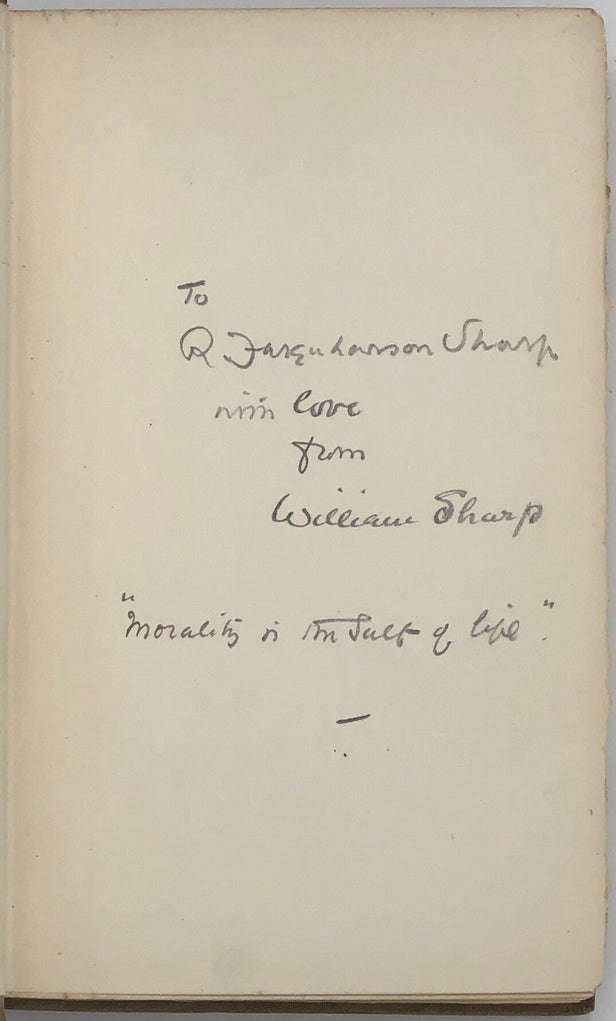 To
R Farquharson Sharp
with love
from
William Sharp
"Morality is the Salt of life".